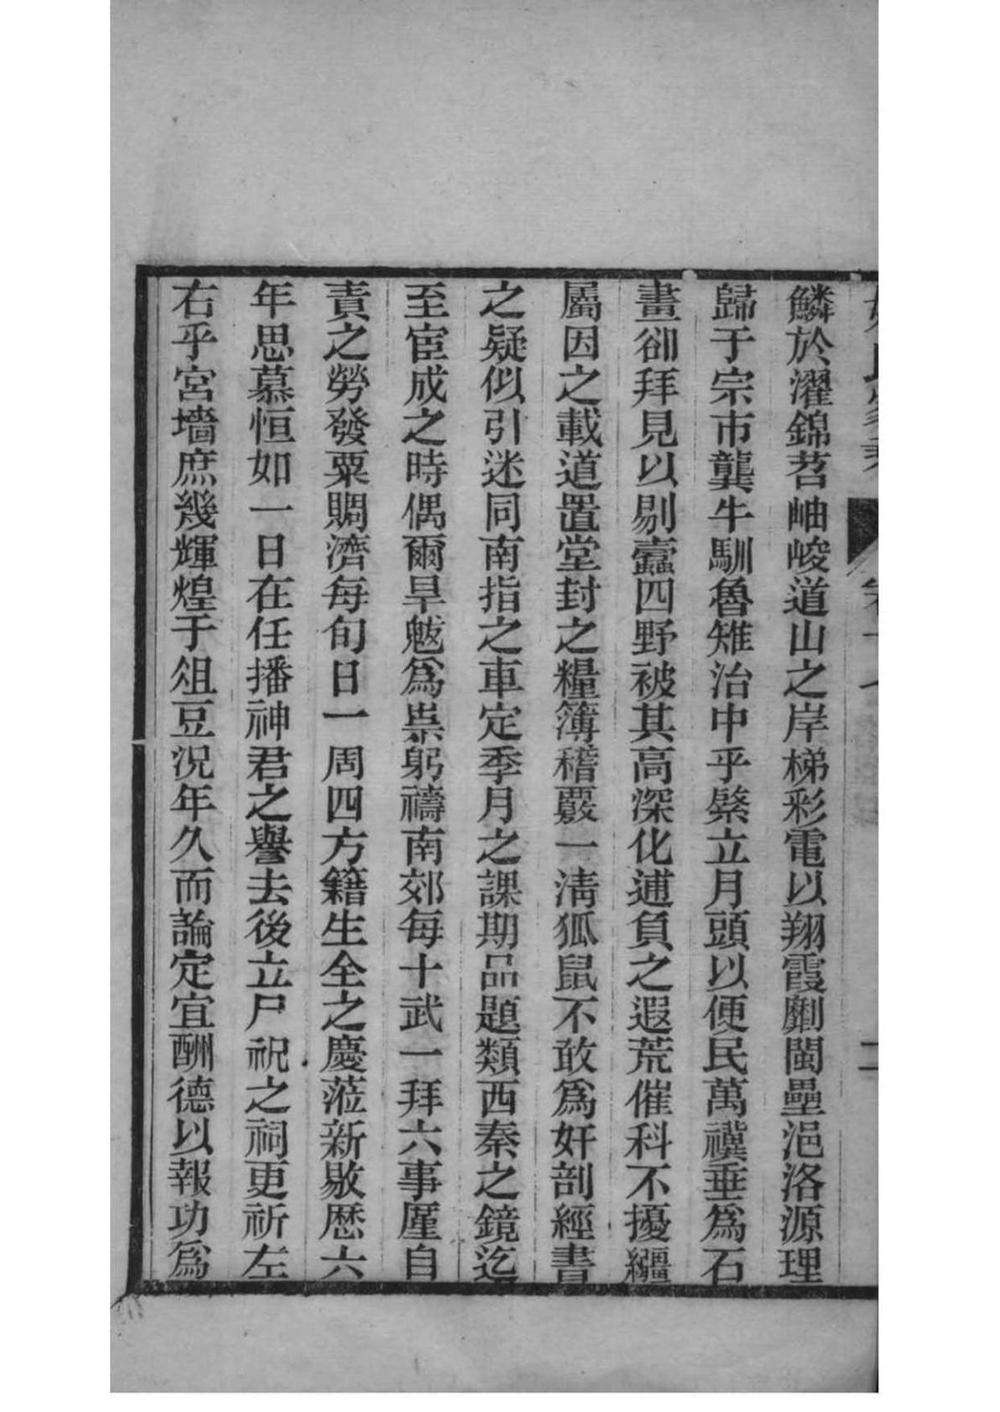 鱗於濯錦苕岫峻道山之岸梯彩電以翔霞劘閩壘浥洛源理
歸于宗市龔牛馴魯雉治中乎棨立月頭以便民萬禩垂為石
畫卻拜見以剔蠹四野被其高深化逋負之遐荒催科不擾繮
屬因之載道置堂封之糧簿稽覈一清狐鼠不敢為奸剖經書
之疑似引迷同南指之車定季月之課期品題類西秦之鏡迄
至宦成之時偶爾旱魃爲祟躬禱南郊每十武一拜六事厪自
責之勞發粟賙濟每旬日一周四方籍生全之慶蒞新敭歷六
年思慕恒如一日在任播神君之譽去後立尸祝之祠更祈左
右乎宮墻庶幾輝煌于俎豆況年久而論定宜酬德以報功爲